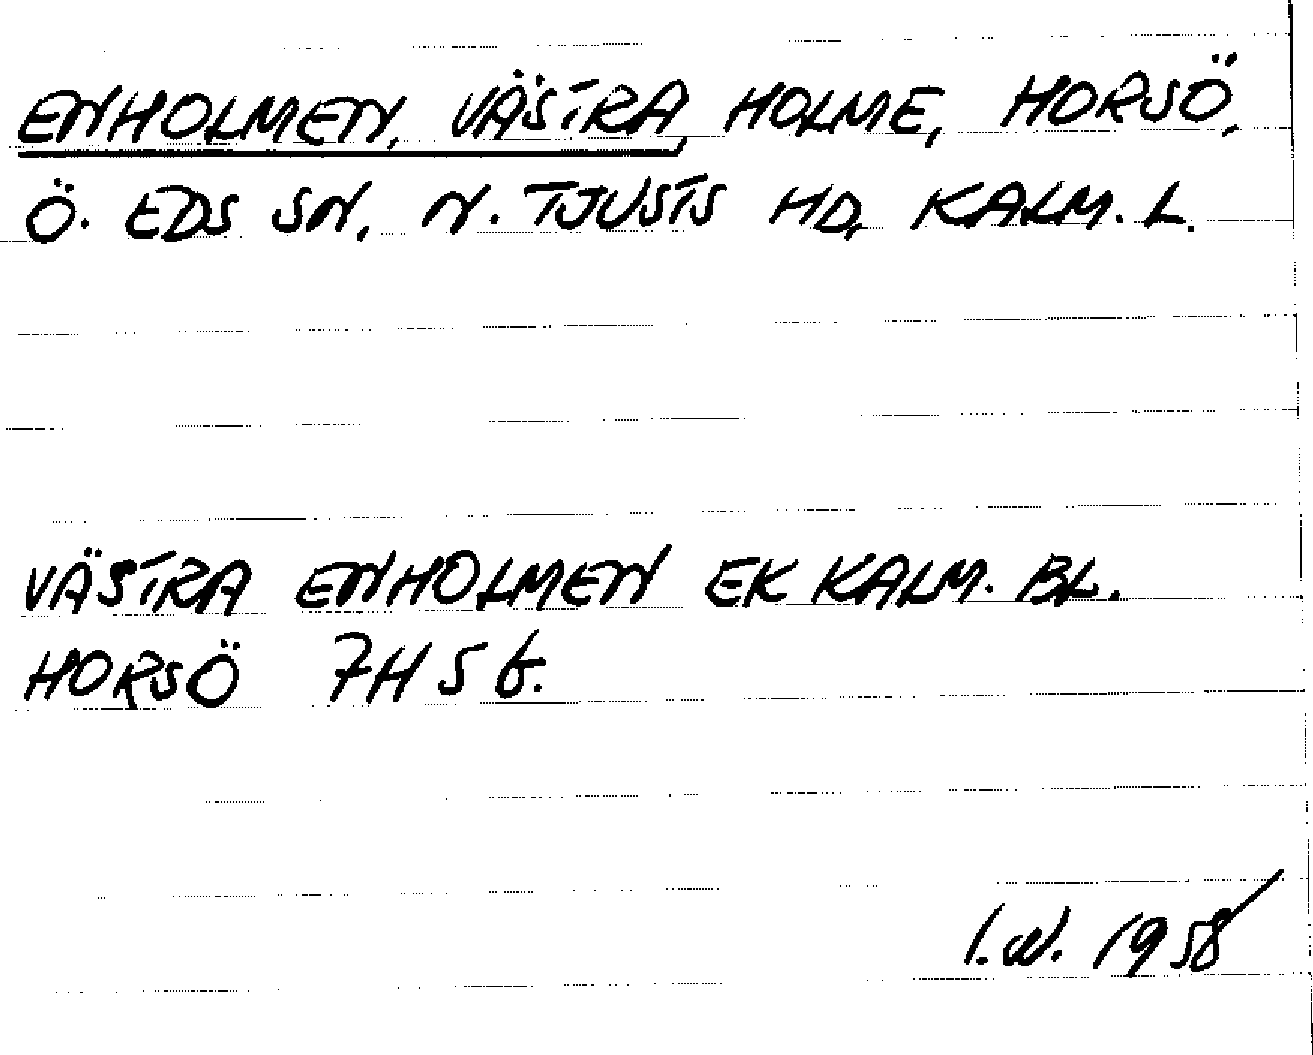 ENHOLMEN, VÄSTRA, HOLME, HORSÖ,
Ö. EDS SN, N. TJUSTS HD, KALM. L.
VÄSTRA ENHOLMEN EK KALM. BL.
HORSÖ 7H 5 b.
I.W. 1958